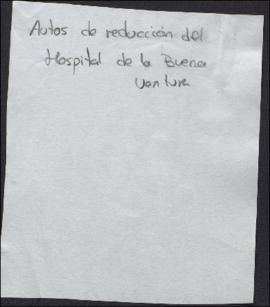 Autos de reducción del
Hospital de la Buena
Ventura